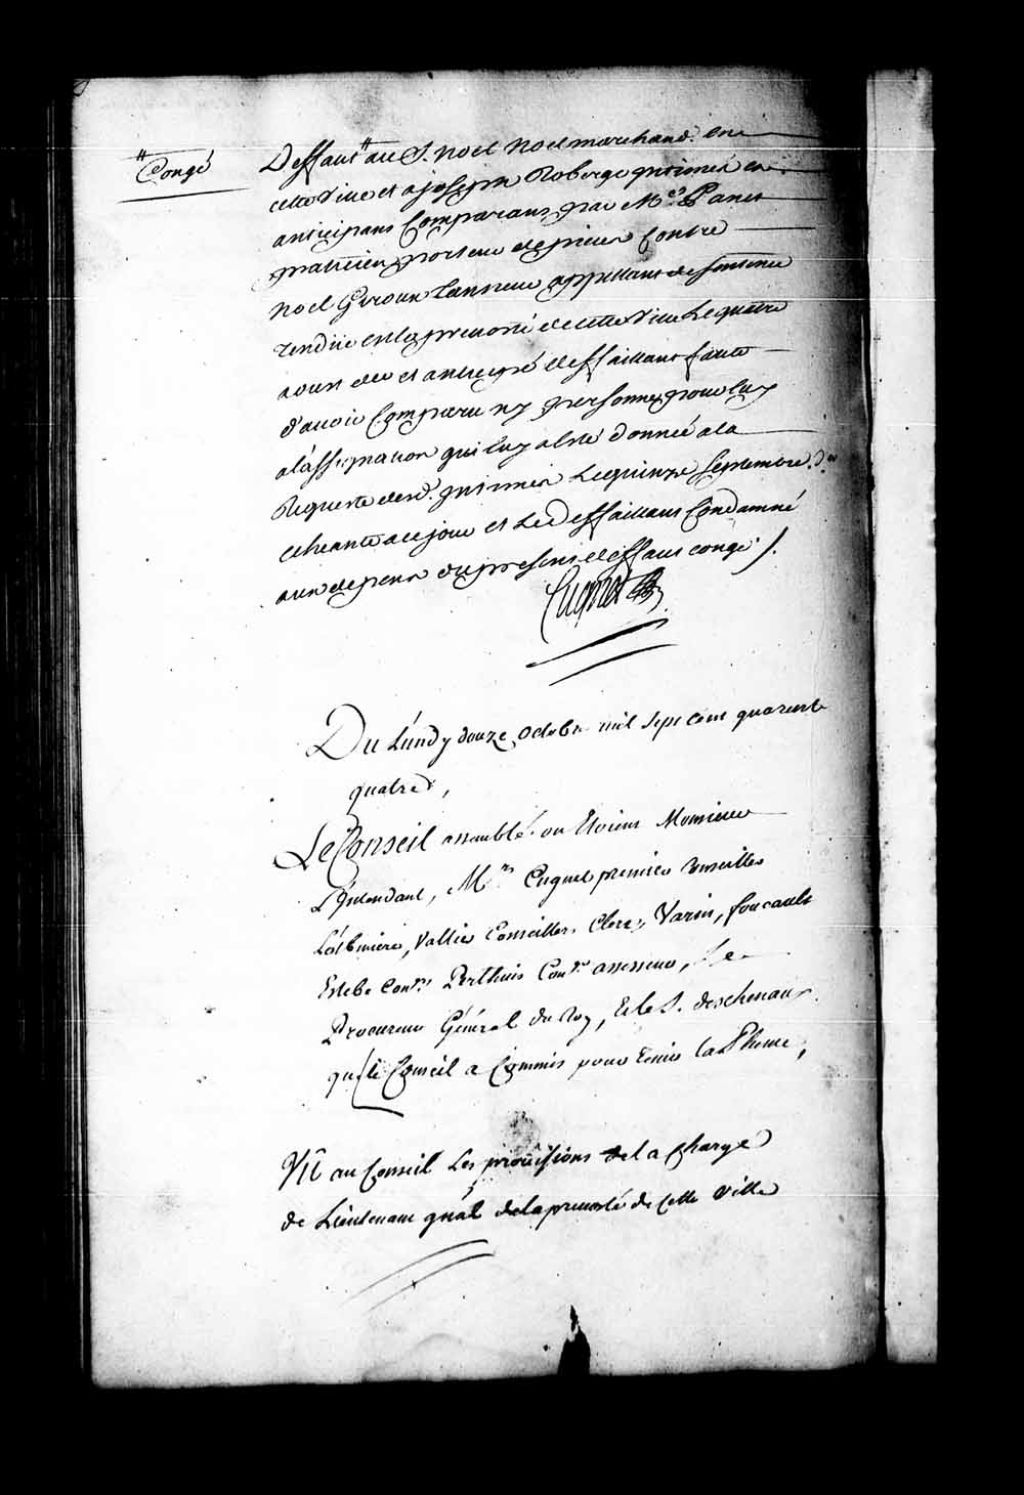 Congé
Deffaut au S. Noel Noel marchand en
cette Ville et a joseph Roberge intimés en
anticipans Comparans par Me. Panet
praticien porteur de pieces Contre
Noel Giroux Tanneur appellant de sentence
rendüe en la prevosté de cette Ville Le quatre
aoust der et anticipé deffaillant faute
d'avoir Comparu ny personne pour luy
a l'assignation qui luy a esté donnée a la
Requeste desd. intimés Le quinze septembre der
echeante a ce jour et Le deffaillant Condamné
aux depens du present deffaut congé ./.
Cugnet
Du Lundy douze octobre mil sept cent quarente
quatre,
Le Conseil assemblé ou Etoient Monsieur
L'Intendant, Mrs Cugnet premier Conseiller
Lotbiniere, Vallier Conseillers Clercs, Varin, foucault
Estebe Conrs. Perthuis Conr. assesseur, Le
Procureur Général du Roy, Et le S. deschenaux
que le Conseil a Commis pour tenir la Plume,
Vû au Conseil Les provisions de la Charge
de Lieutenant gnâl de la prevosté de Cette Ville